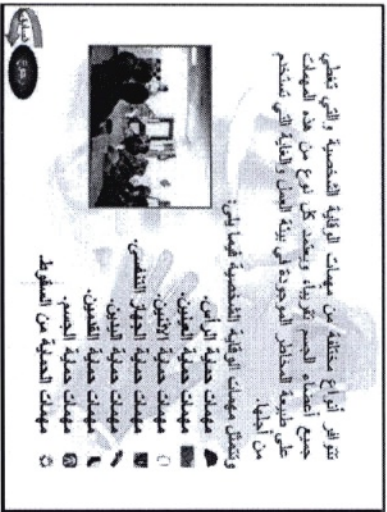 تتوافر أنواع مختلفة من مهمات الوقاية الشخصية والتي تغطي
جميع أعضاء الجسم تقريباً، ويعتمد كل نوع من هذه المهمات
على طبيعة المخاطر الموجودة في بيئة العمل والغاية التي تستخدم
من أجلها.
وتتمثل مهمات الوقاية الشخصية فيما يلي:
مهمات حماية الرأس.
مهمات حماية العينين.
مهمات حماية الأذنين.
مهمات حماية الجهاز التنفسي.
مهمات حماية اليدين.
مهمات حماية القدمين.
مهمات حماية الجسم.
مهمات الحماية من السقوط